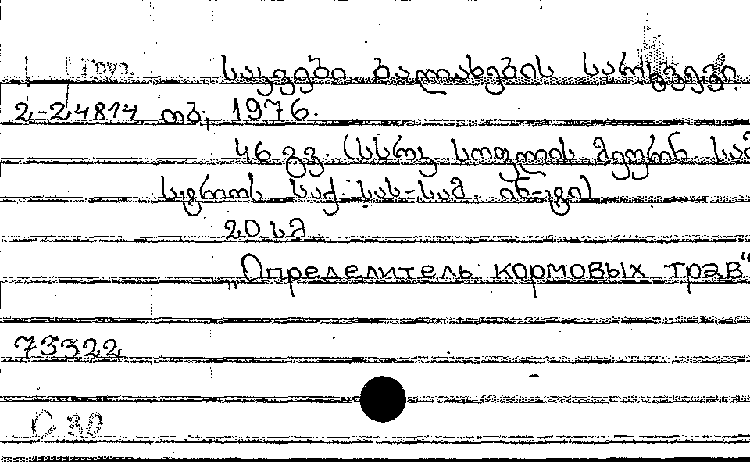 საკვები ბალახების სარკვევი.
2-24814 თბ., 1976.
46 გვ. (სსრკ სოფლის მეურნ. სამ
საქ. სას-სამ. ინ-ტი)
20 სმ
„Определитель кормовых трав“
73322
С 30